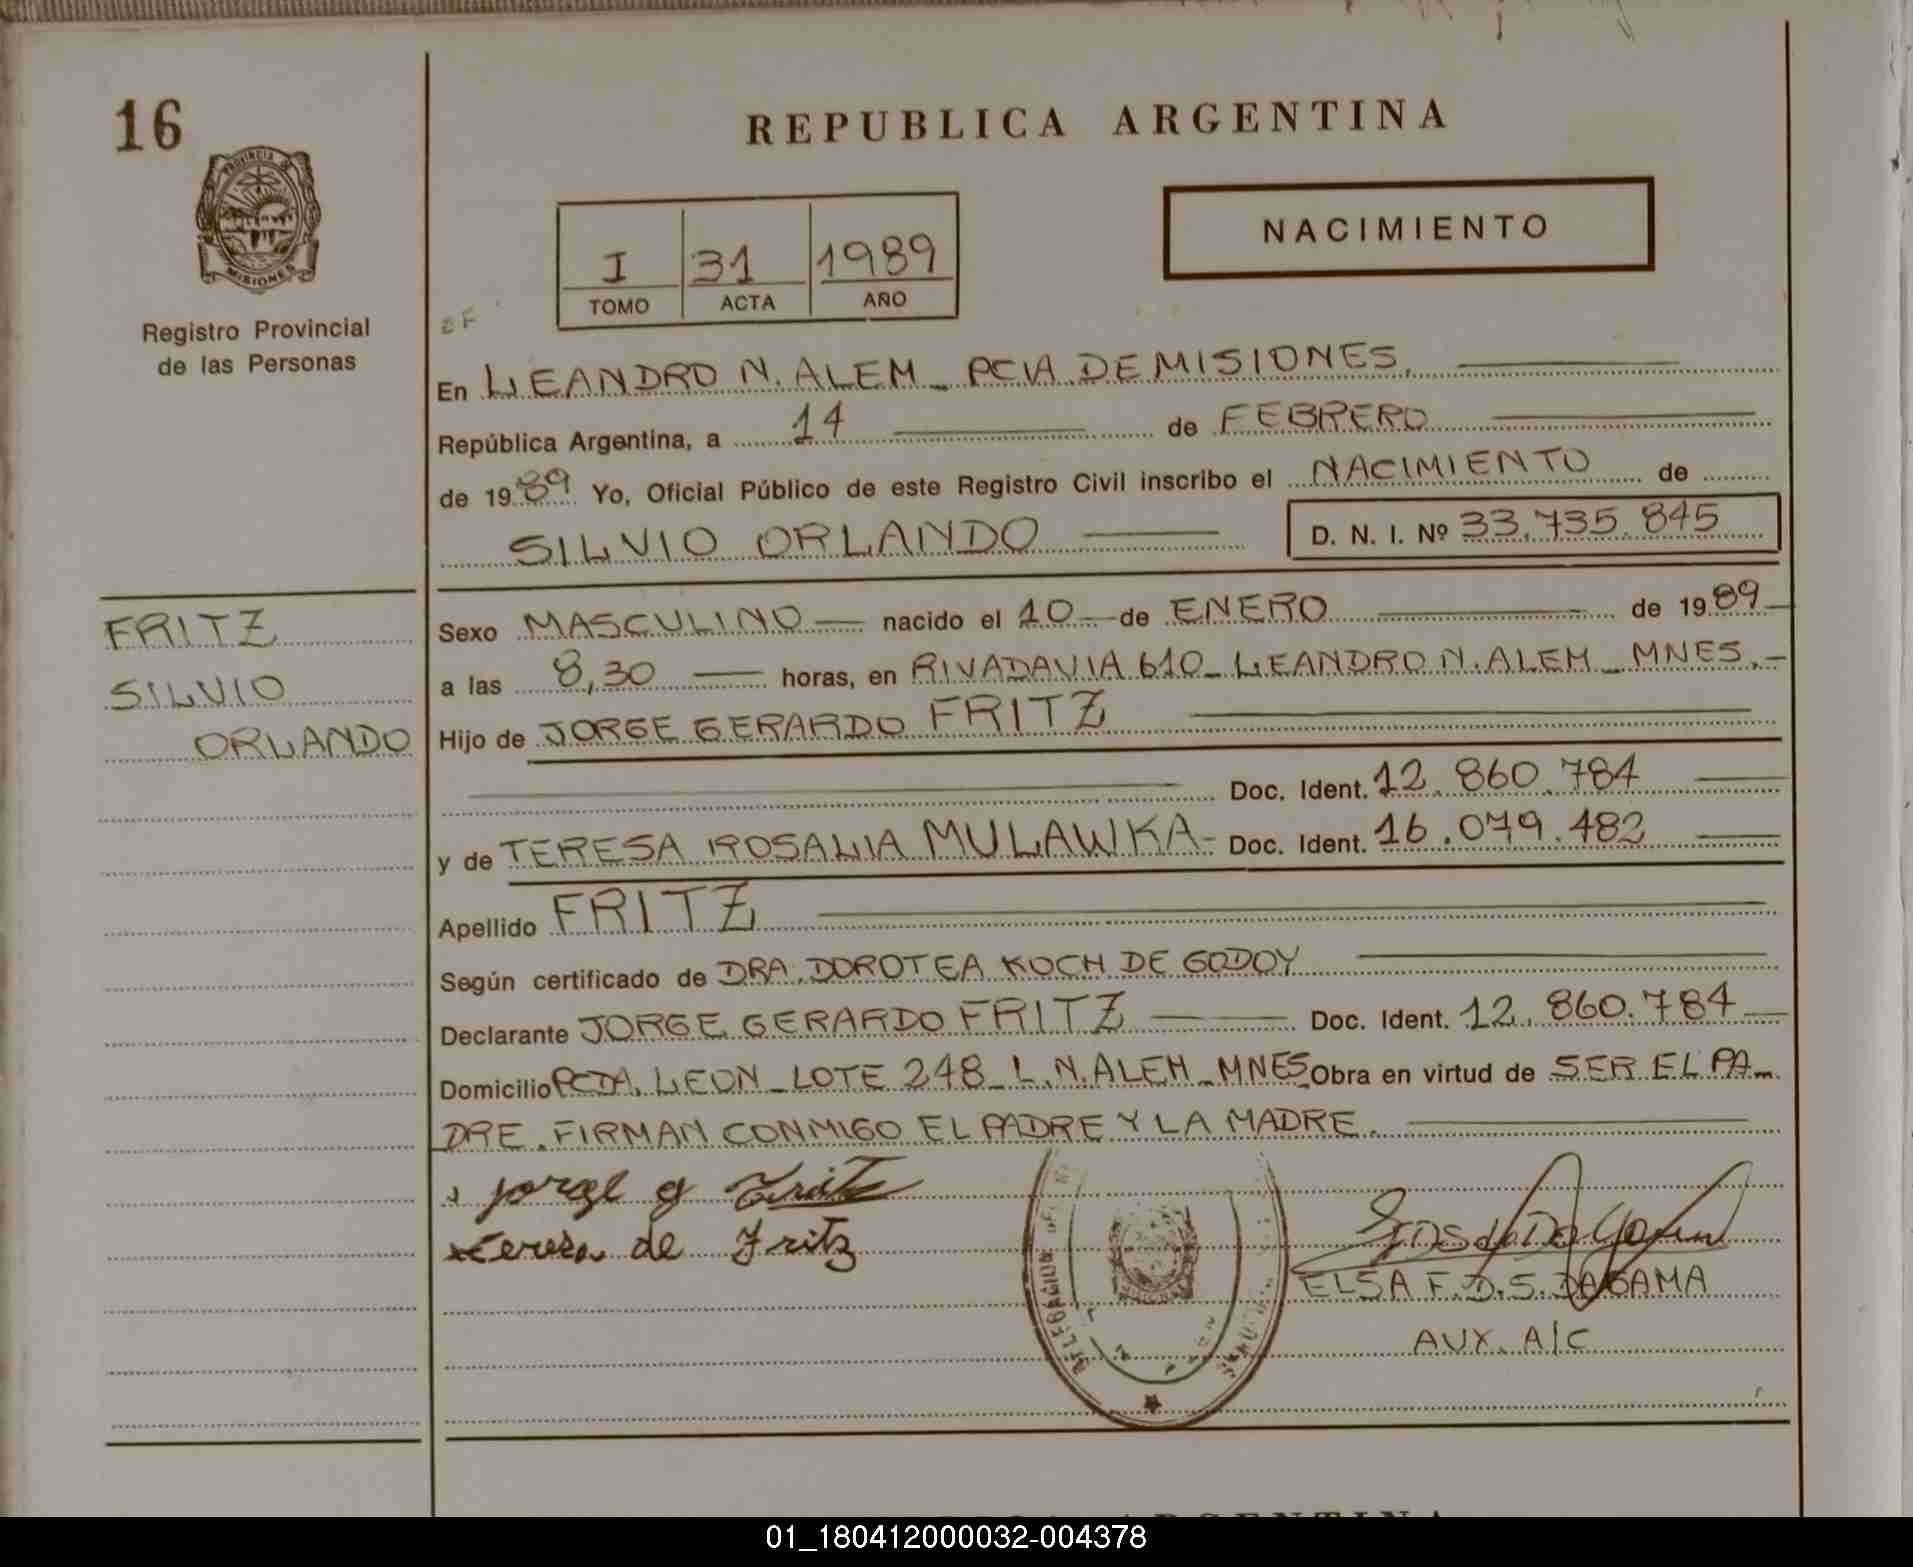 16
REPUBLICA ARGENTINA
PROVINCIA DE
MISIONES
Registro Provincial
de las Personas
NACIMIENTO
I 31 1989
TOMO ACTA AÑO
En LEANDRO N. ALEM - PCIA DE MISIONES.
República Argentina, a 14 de FEBRERO
de 1989 Yo, Oficial Público de este Registro Civil inscribo el NACIMIENTO de
SILVIO ORLANDO D. N. I. Nº 33.735.845
FRITZ
SILVIO
ORLANDO
Sexo MASCULINO nacido el 10 de ENERO de 1989
a las 8,30 horas, en RIVADAVIA 610 - LEANDRO N. ALEM - MNES.-
Hijo de JORGE GERARDO FRITZ
Doc. Ident. 12.860.784
y de TERESA ROSALIA MULAWKA - Doc. Ident. 16.079.482
Apellido FRITZ
Según certificado de DRA. DOROTEA KOCH DE GODOY
Declarante JORGE GERARDO FRITZ Doc. Ident. 12.860.784
Domicilio PCDA. LEON - LOTE 248 - L.N. ALEM - MNES Obra en virtud de SER EL PA-
DRE. FIRMAN CONMIGO EL PADRE Y LA MADRE.
Jorge g Fritz
Teresa de Fritz
DELEGACION
ELSA F. D. S. DAGAMA
AUX. A/C
ARGENTINA
01_180412000032-004378